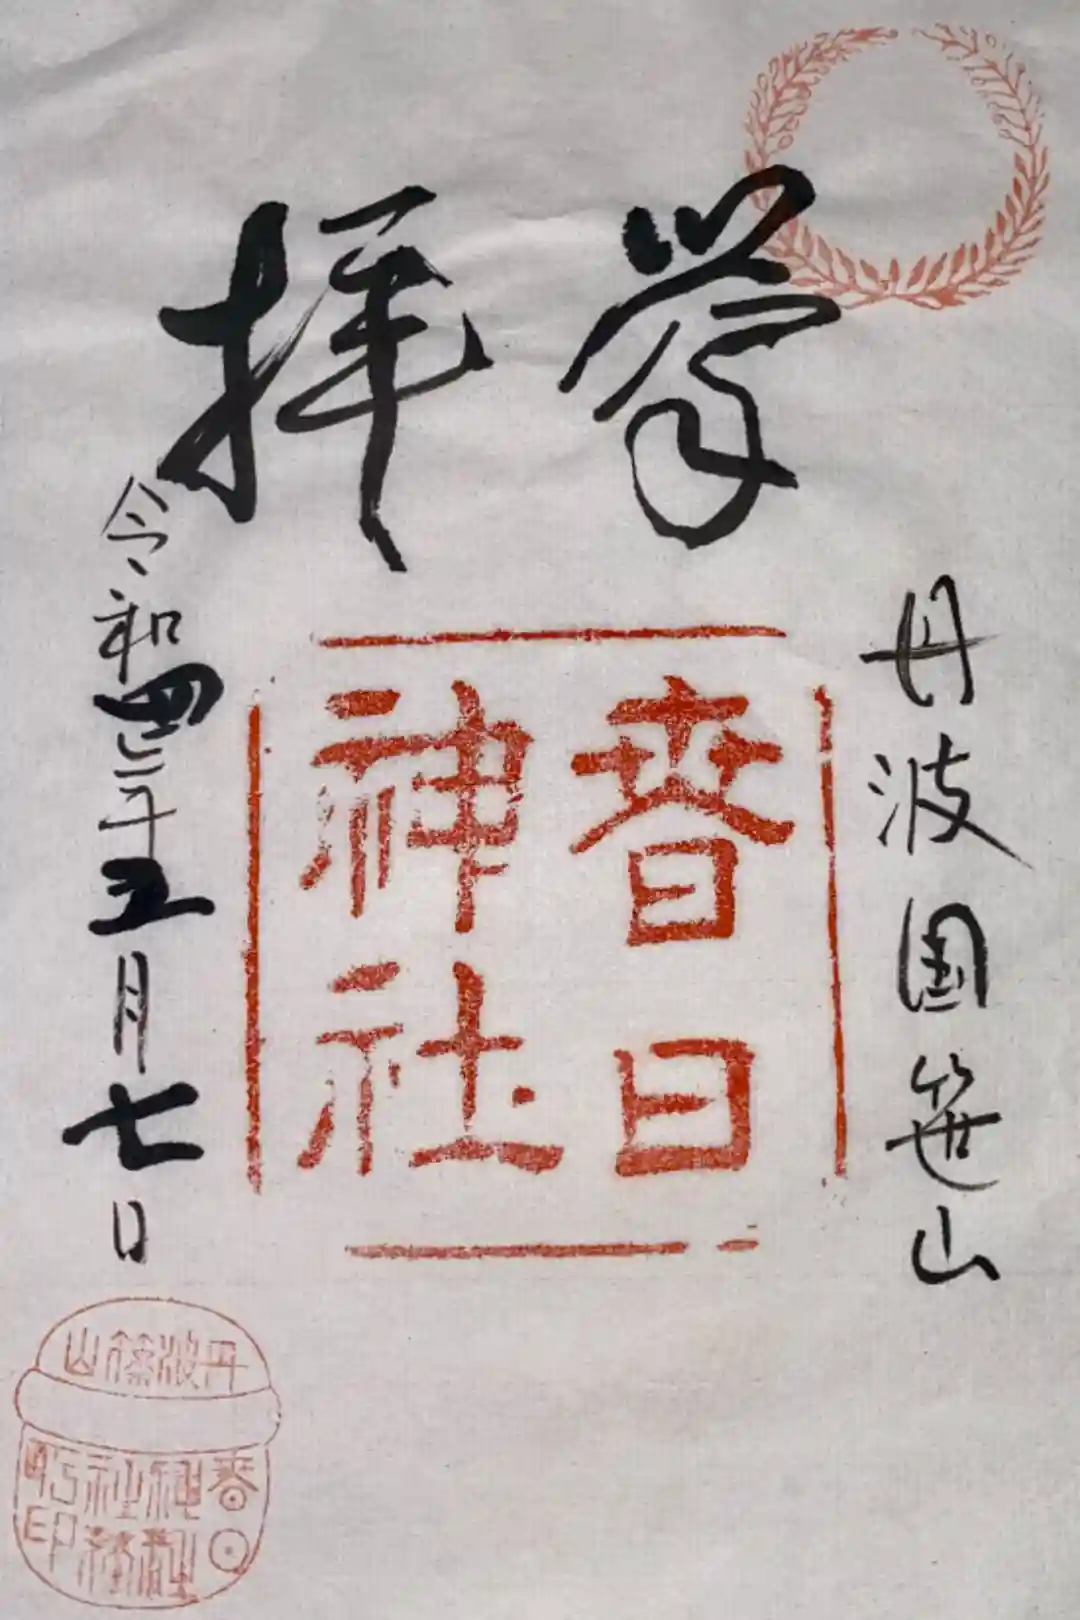 丹波国笹山
拝
春日
神社
令和四年五月七日
丹波篠山
春日
神社
社務
所印